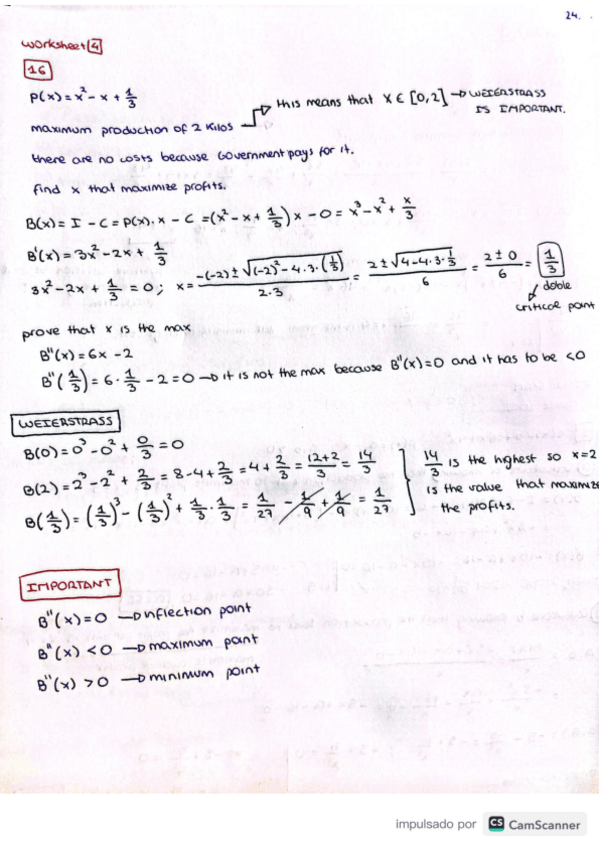 24.
Worksheet 4
16
P(x) = x² - x + 1/3
this means that x ∈ [0,2] → WEIERSTRASS
IS IMPORTANT.
maximum production of 2 kilos
there are no costs because Government pays for it.
find x that maximize profits.
B(x) = I - C = P(x)·x - C = (x² - x + 1/3)x - 0 = x³ - x² + x/3
B'(x) = 3x² - 2x + 1/3
3x² - 2x + 1/3 = 0; x = (-(-2) ± √((-2)² - 4·3·(1/3)))/(2·3) = (2 ± √(4 - 4·3·1/3))/6 = (2 ± 0)/6 = 1/3
doble
critical point
prove that x is the max
B''(x) = 6x - 2
B''(1/3) = 6·1/3 - 2 = 0 → it is not the max because B''(x) = 0 and it has to be < 0
WEIERSTRASS
B(0) = 0³ - 0² + 0/3 = 0
B(2) = 2³ - 2² + 2/3 = 8 - 4 + 2/3 = 4 + 2/3 = (12+2)/3 = 14/3
B(1/3) = (1/3)³ - (1/3)² + 1/3·1/3 = 1/27 - 1/9 + 1/9 = 1/27
14/3 is the highest so x=2
is the value that maximize
the profits.
IMPORTANT
B''(x) = 0 → inflection point
B''(x) < 0 → maximum point
B''(x) > 0 → minimum point
impulsado por CS CamScanner